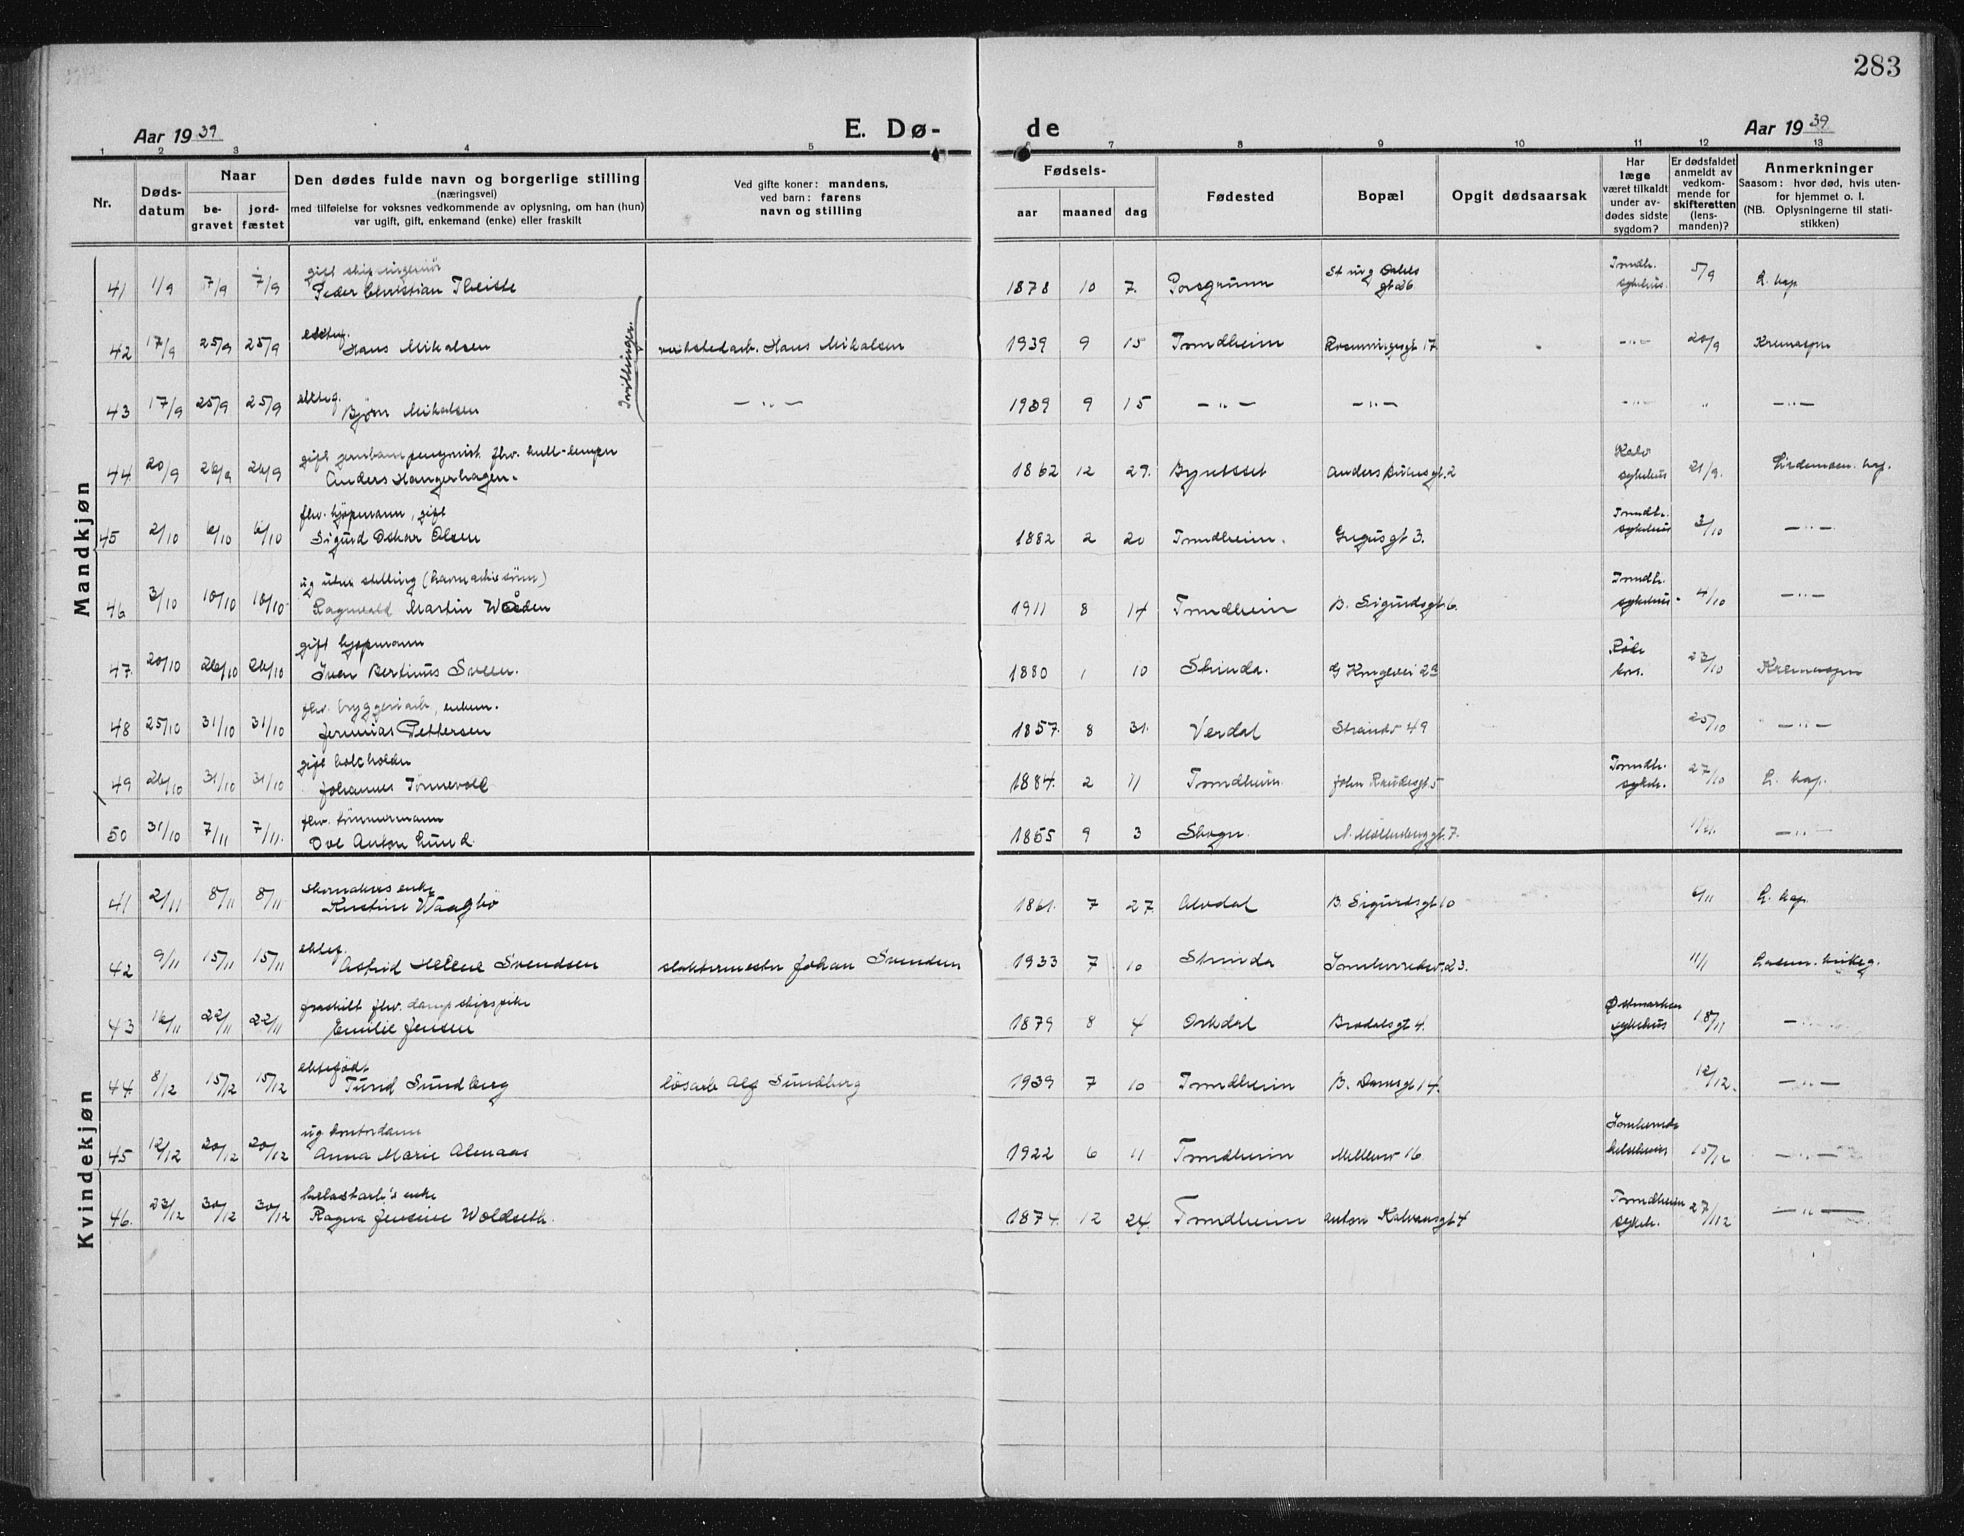 283
Aar 1939 E. Dø- de Aar 1939
1 2 3 4 5 6 7 8 9 10 11 12 13
Nr.
Døds-
datum
Naar
be-
gravet
jord-
fæstet
Den dødes fulde navn og borgerlige stilling
(næringsvei)
med tilføielse for voksnes vedkommende av oplysning, om han (hun)
var ugift, gift, enkemand (enke) eller fraskilt
Ved gifte koner: mandens,
ved barn: farens
navn og stilling
Fødsels-
aar maaned dag
Fødested
Bopæl
Opgit dødsaarsak
Har
læge
været tilkaldt
under av-
dødes sidste
sygdom?
Er dødsfaldet
anmeldt av
vedkom-
mende for
skifteretten
(lens-
manden)?
Anmerkninger
Saasom: hvor død, hvis uten-
for hjemmet o. l.
(NB. Oplysningerne til stati-
stikken)
Mandkjøn
gift skipsingeniør
41 1/9 7/9 7/9 Peder Christian Theiste 1878 10 7. Porsgrunn gt 26 Trondh. sykehus. 5/9 L. kap
ektef.
42 17/9 25/9 25/9 Hans Mikalsen Tvillinger. verkstedarb. Hans Mikalsen 1939 9 15 Trondheim 17 — " — 20/9
ektef.
43 17/9 25/9 25/9 Bjørn Mikalsen — " — 1939 9 15 — " — — " — — " — " — " —
gift jernbanepensjonist flw.
44 20/9 26/9 26/9 Anders Hangerhagen. 1862 12 29. Bynesset Anders Buens gt. 2 sykehus 21/9.
fhv. kjøpmann, gift
45 2/10 6/10 6/10 Sigurd Oskar Olsen 1882 2 20 Trondheim. gt 3. Trondh. sykehus 3/10 — " —
ug uten stilling
46 3/10 10/10 10/10 Ragnvald Martin Waaden 1911 8 14 Trondheim B. Sigurdsgt 6. Trondh. sykehus. 4/10 — " —
gift kjøpmann
47. 20/10 26/10 26/10 Iver Bertinus Sveen. 1880 1 10 Strinda. G Kongevei Røde kors. 23/10
fhv. bryggeriarb, enkem.
48 25/10 31/10 31/10 Jeremias Pettersen 1857. 8 31. Verdal Strandv 49 25/10 — " —
gift
49 26/10 31/10 31/10 Johannes Tønnevold 1884. 2 11 Trondheim. 5 Trondh. sykeh. 27/10 L. kap.
fhv. tømmermann
50 31/10 7/11 7/11. Ole Anton Lund. 1855 9 3 Skogn. N. Møllenberggt. 7. — " —
Kvindekjøn
skomakers enke
41 2/11 8/11 8/11 Kristine Waagbø 1861. 7 27. Alvdal B. Sigurdsgt 10 6/11 L. kap.
ektef.
42 9/11 15/11 15/11 Astrid Helene Svendsen slaktermester Johan Svendsen 1933 7 10 Strinda Innherredsv. 23. 11/11
fraskilt fhv. dampskipspike
43 16/11 22/11 22/11 Emilie Jensen 1879 8 4 Orkdal gt 4. Østmarken sykehus 18/11 — " —
ektefødt
44. 8/12 15/12 15/12 Turid Sundberg løsarb Alf Sundberg 1939 7 10 Trondheim gt 14. 12/12. — " —
ug kontordame
45 12/12 20/12 20/12 Anna Marie Almaas 1922 6 11 Trondheim Mellemv 16. 15/12 — " —
enke
46. 23/12 30/12 30/12 Ragna Jensine Woldseth. 1874. 12 24. Trondheim gt 4 Trondheim sykeh. 27/12 — " —